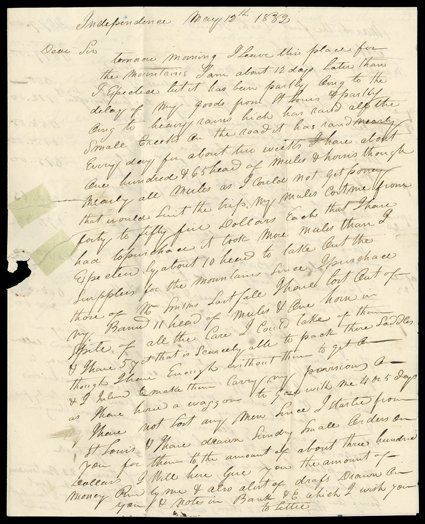 Independence May 12th 1832
Dear Sir
tomorrow morning I Leave this place for
the Mountains I am about 12 days Later than
I Expected but it has been partly Ong to the
delay of My goods from St Louis & partly
Ong to heavy rains hich has raised all the
Small Creeks On the road it has raind nearly
Every day for about two weeks I have about
One hundred & 65 head of Mules & horses though
nearly all Mules as I Could not get poneys
that would Suit the trip. My Mules Cost me from
forty to fifty five Dollars Each that I have
had to purchace it took More Mules than I
Expected by about 10 head to take Out the
Supplies for the Mountains Since I purchace
those of Mr Smiths Last fall I have lost Out of
my Band 11 head of Mules & One horse in
Spite of all the Care I Could take of them
& I have 5 yet that is Scarcely able to pack there Saddles
though I have Enough without them to get a-
& I Intend to make them Carry my provisions a-
as I have hired a waggone to go with me 4 or 5 days
I have not Lost any Men Since I Started from
St Louis & I have drawn Sundry Small Orders on
you for them to the amount of about three hundred
Dollars I Will here Give you the amount of
Money by me & also a list of drafts Drawn On
you & Note in Bank &c which I wish you
to settle